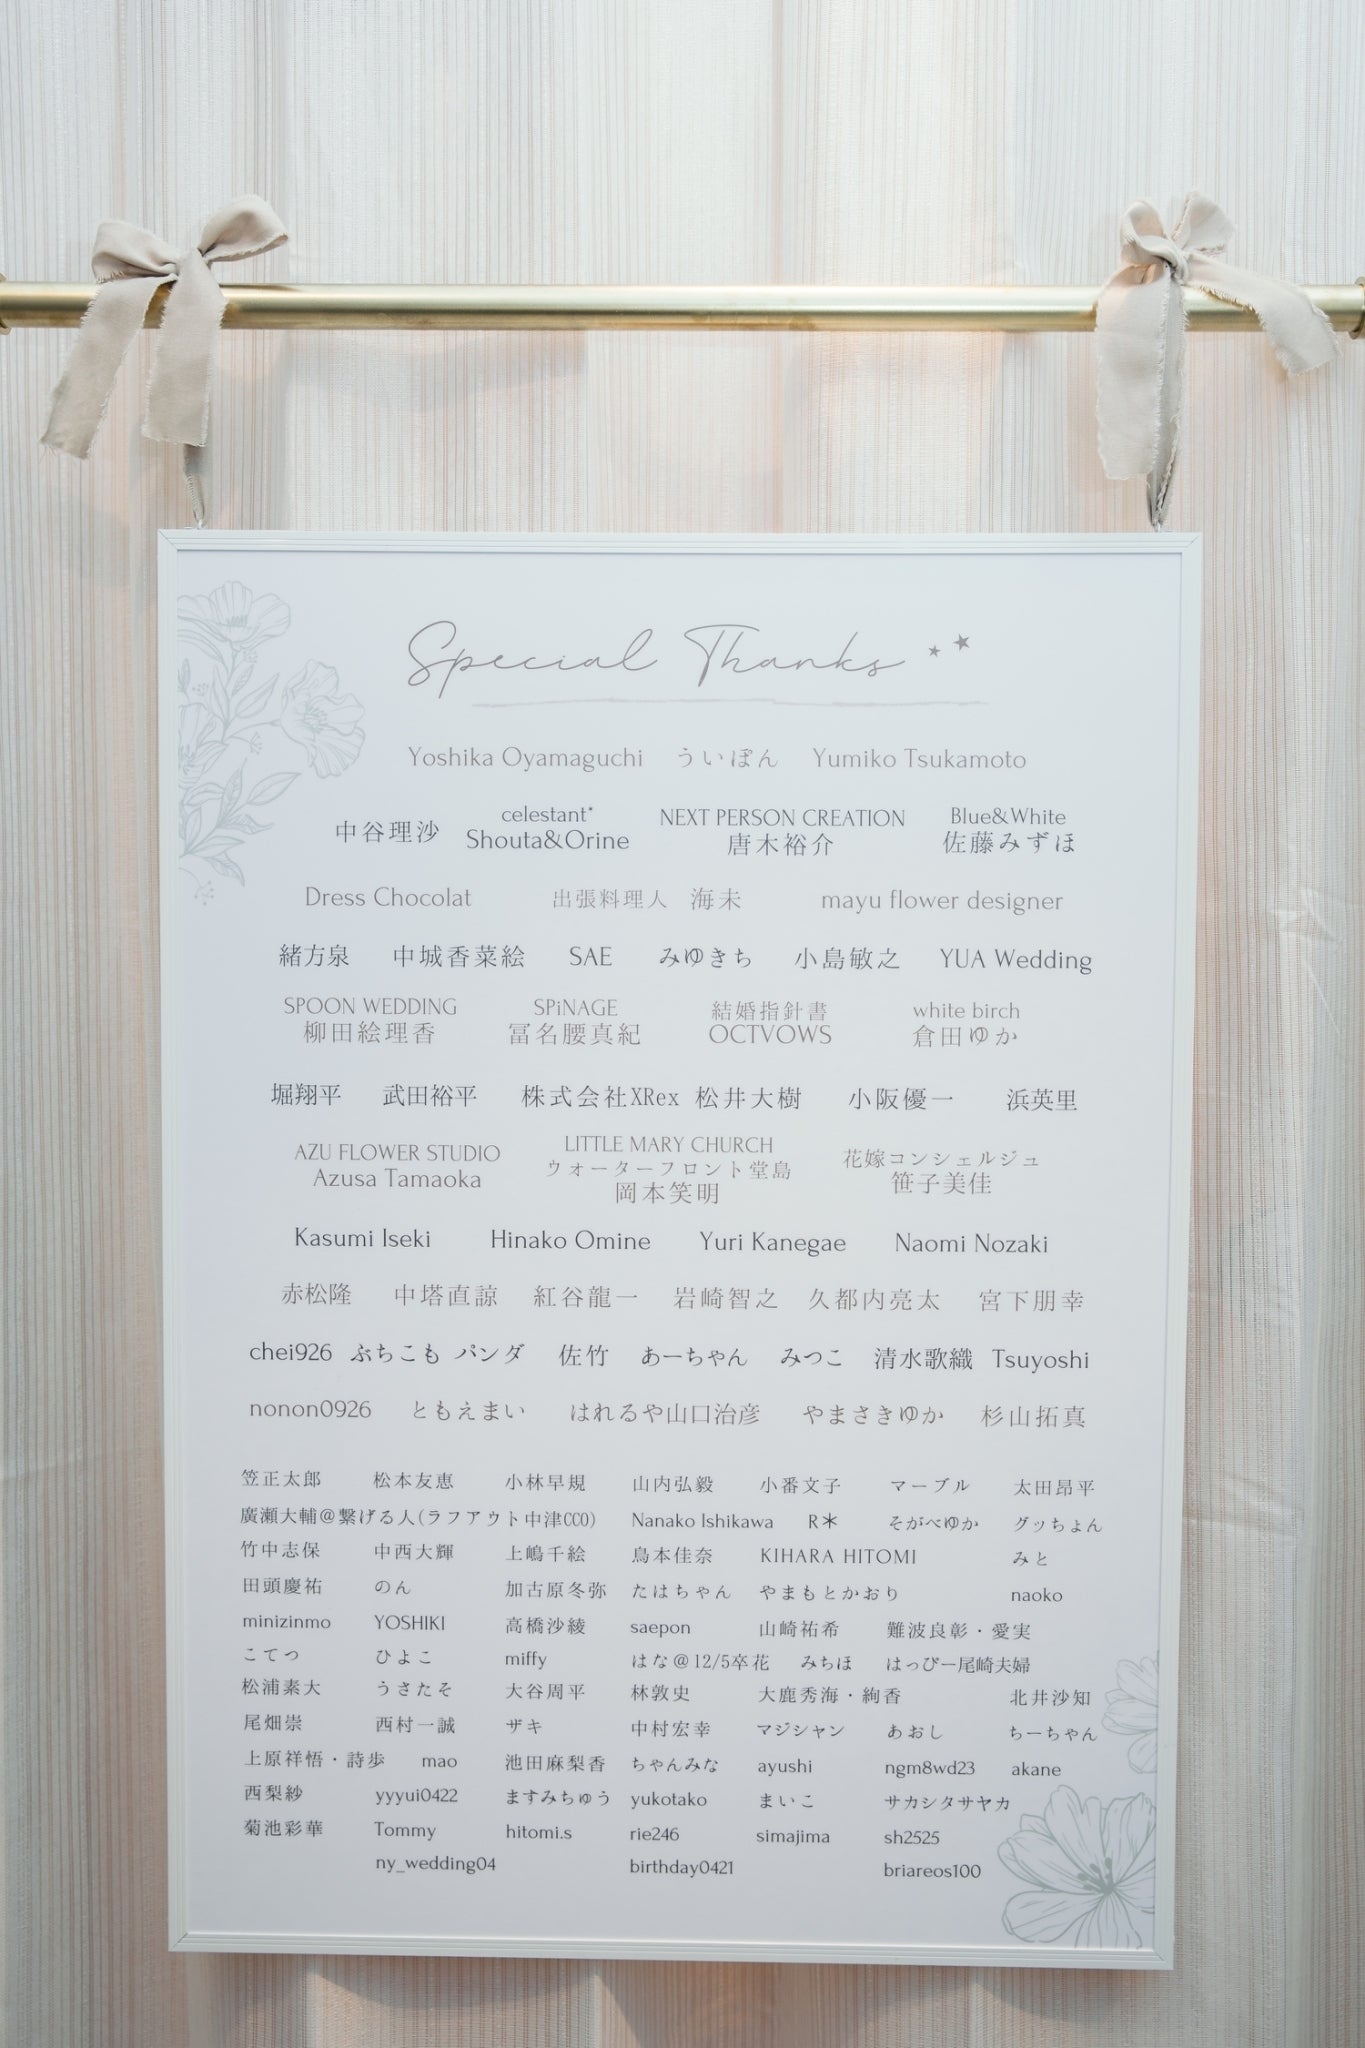 Special Thanks
Yoshika Oyamaguchi ういぽん Yumiko Tsukamoto
中谷理沙 celestant* NEXT PERSON CREATION Blue&White
Shouta&Orine 唐木裕介 佐藤みずほ
Dress Chocolat 出張料理人 海未 mayu flower designer
緒方泉 中城香菜絵 SAE みゆきち 小島敏之 YUA Wedding
SPOON WEDDING SPiNAGE 結婚指針書 white birch
柳田絵理香 冨名腰真紀 OCTVOWS 倉田ゆか
堀翔平 武田裕平 株式会社XRex 松井大樹 小阪優一 浜英里
AZU FLOWER STUDIO LITTLE MARY CHURCH 花嫁コンシェルジュ
Azusa Tamaoka ウォーターフロント堂島 笹子美佳
岡本笑明
Kasumi Iseki Hinako Omine Yuri Kanegae Naomi Nozaki
赤松隆 中塔直諒 紅谷龍一 岩崎智之 久都内亮太 宮下朋幸
chei926 ぶちこも パンダ 佐竹 あーちゃん みつこ 清水歌織 Tsuyoshi
nonon0926 ともえまい はれるや山口治彦 やまさきゆか 杉山拓真
笠正太郎 松本友恵 小林早規 山内弘毅 小番文子 マーブル 太田昂平
廣瀬大輔@繋げる人(ラフアウト中津CCO) Nanako Ishikawa R* そがべゆか グッちょん
竹中志保 中西大輝 上嶋千絵 鳥本佳奈 KIHARA HITOMI みと
田頭慶祐 のん 加古原冬弥 たはちゃん やまもとかおり naoko
minizinmo YOSHIKI 高橋沙綾 saepon 山崎祐希 難波良彰・愛実
こてつ ひよこ miffy はな@12/5卒花 みちほ はっぴー尾崎夫婦
松浦素大 うさたそ 大谷周平 林敦史 大鹿秀海・絢香 北井沙知
尾畑崇 西村一誠 ザキ 中村宏幸 マジシャン あおし ちーちゃん
上原祥悟・詩歩 mao 池田麻梨香 ちゃんみな ayushi ngm8wd23 akane
西梨紗 yyyui0422 ますみちゅう yukotako まいこ サカシタサヤカ
菊池彩華 Tommy hitomi.s rie246 simajima sh2525
ny_wedding04 birthday0421 briareos100